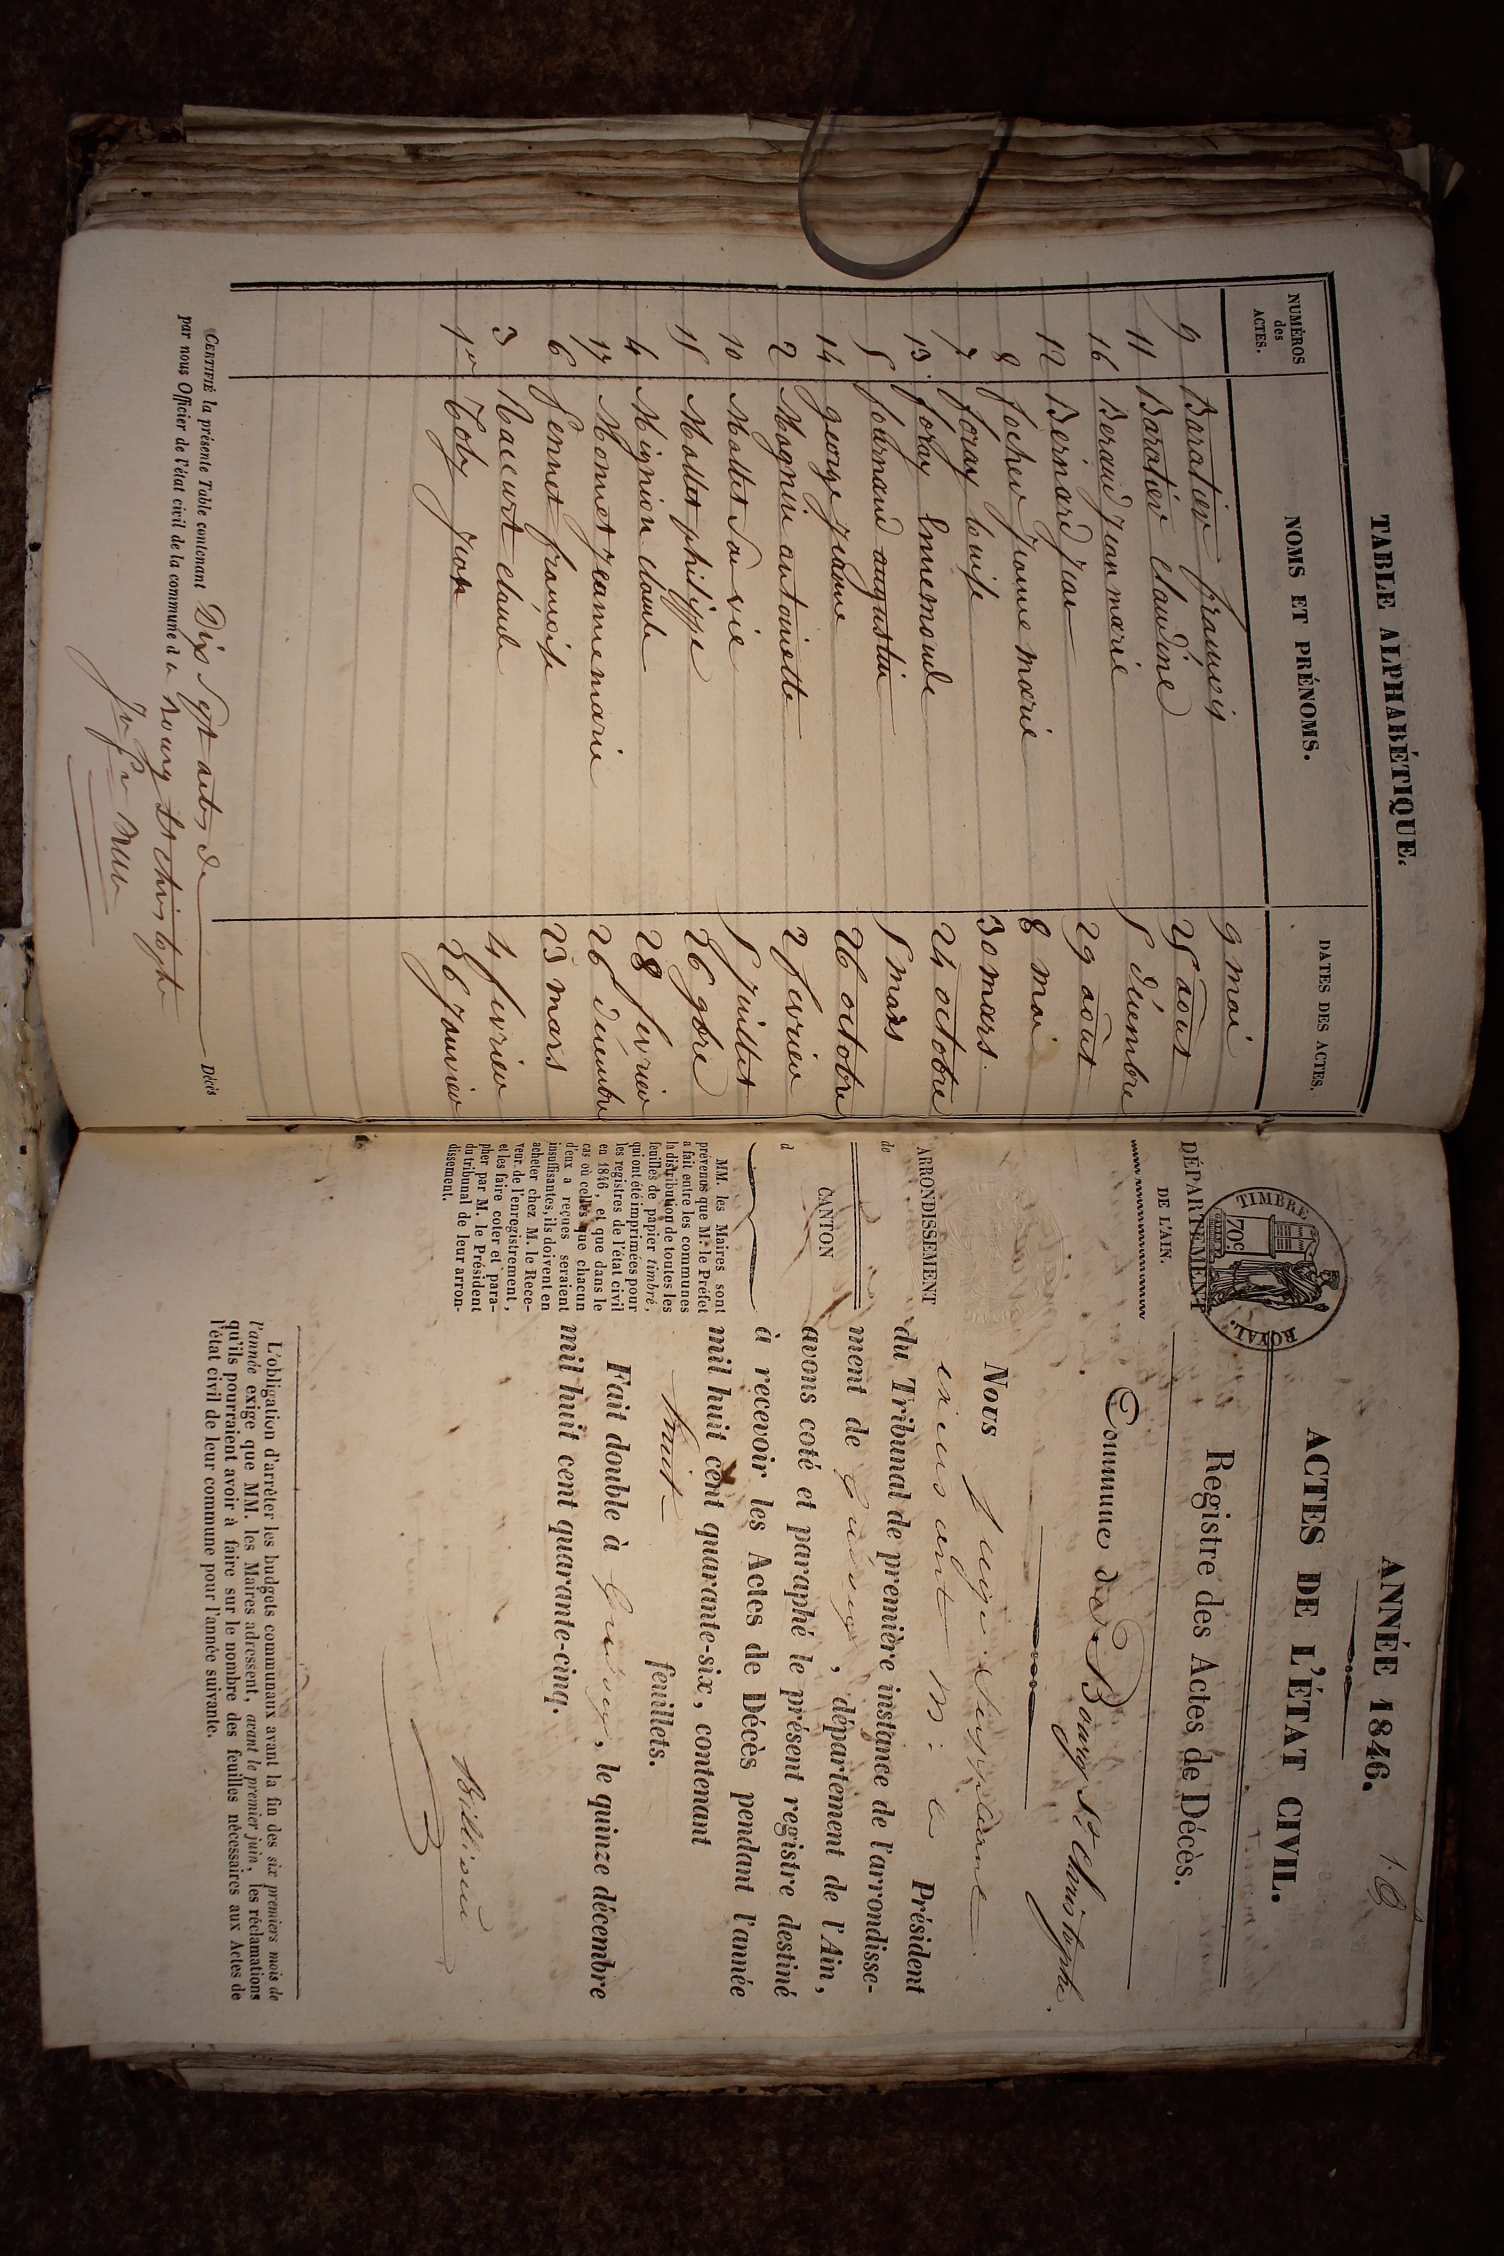 TABLE ALPHABÉTIQUE.
NUMÉROS
des
ACTES.
NOMS ET PRÉNOMS.
DATES DES ACTES.
9 Baratier francois 9 mai
11 Baratier claudine 25 août
16 Beraud jean marie 5 décembre
12 Bernard jean 29 août
8 jeanne marie 8 mai
7 foray louise 30 mars
13 foray 24 octobre
5 augustin 5 mars
14 george jeanne 26 octobre
2 Magnin antoinette 2 fevrier
10 Mallet 5 juillet
15 Mollet philippe 26 9bre
4 Mignion claude 28 fevrier
17 Monnot jeanne marie 26 décembre
6 francoise 23 mars
3 Raccurt claude 4 fevrier
1er Toby jean 26 janvier
CERTIFIÉ la présente Table contenant Dix Sept actes de Décès
par nous Officier de l'état civil de la commune de Bourg St christophe
1. B
ANNÉE 1846.
ACTES DE L'ÉTAT CIVIL.
TIMBRE
70c
ROYAL.
DÉPARTEMENT
DE L'AIN.
Registre des Actes de Décès.
Commune de Bourg St Christophe.
ARRONDISSEMENT
de
CANTON
d
MM. les Maires sont
prévenus que Mr le Préfet
a fait entre les communes
la distribution de toutes les
feuilles de papier timbré,
qui ont été imprimées pour
les registres de l'état civil
en 1846, et que dans le
cas où celles que chacun
d'eux a reçues seraient
insuffisantes, ils doivent en
acheter chez M. le Rece-
veur de l'enregistrement,
et les faire coter et para-
pher par M. le Président
du tribunal de leur arron-
dissement.
Nous juge suppléant
exerçant M. le Président
du Tribunal de première instance de l'arrondisse-
ment de Trévoux, département de l'Ain,
avons coté et paraphé le présent registre destiné
à recevoir les Actes de Décès pendant l'année
mil huit cent quarante-six, contenant
huit feuillets.
Fait double à Trévoux, le quinze décembre
mil huit cent quarante-cinq.
L'obligation d'arrêter les budgets communaux avant la fin des six premiers mois de
l'année exige que MM. les Maires adressent, avant le premier juin, les réclamations
qu'ils pourraient avoir à faire sur le nombre des feuilles nécessaires aux Actes de
l'état civil de leur commune pour l'année suivante.